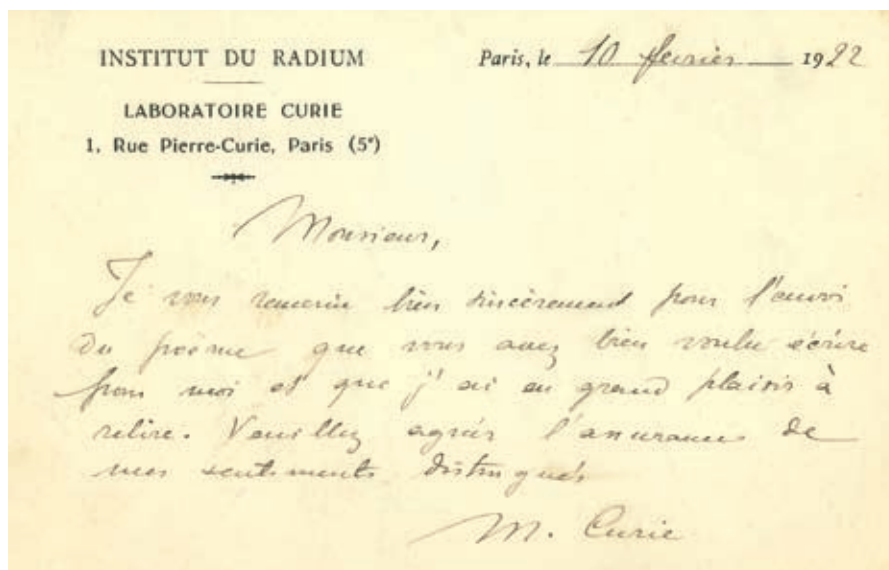 INSTITUT DU RADIUM
Paris, le 10 février 1922
LABORATOIRE CURIE
1, Rue Pierre-Curie, Paris (5e)
Monsieur,
Je vous remercie bien sincèrement pour l'envoi
du poème que vous avez bien voulu écrire
pour moi et que j'ai eu grand plaisir à
relire. Veuillez agréer l'assurance de
mes sentiments distingués
M. Curie